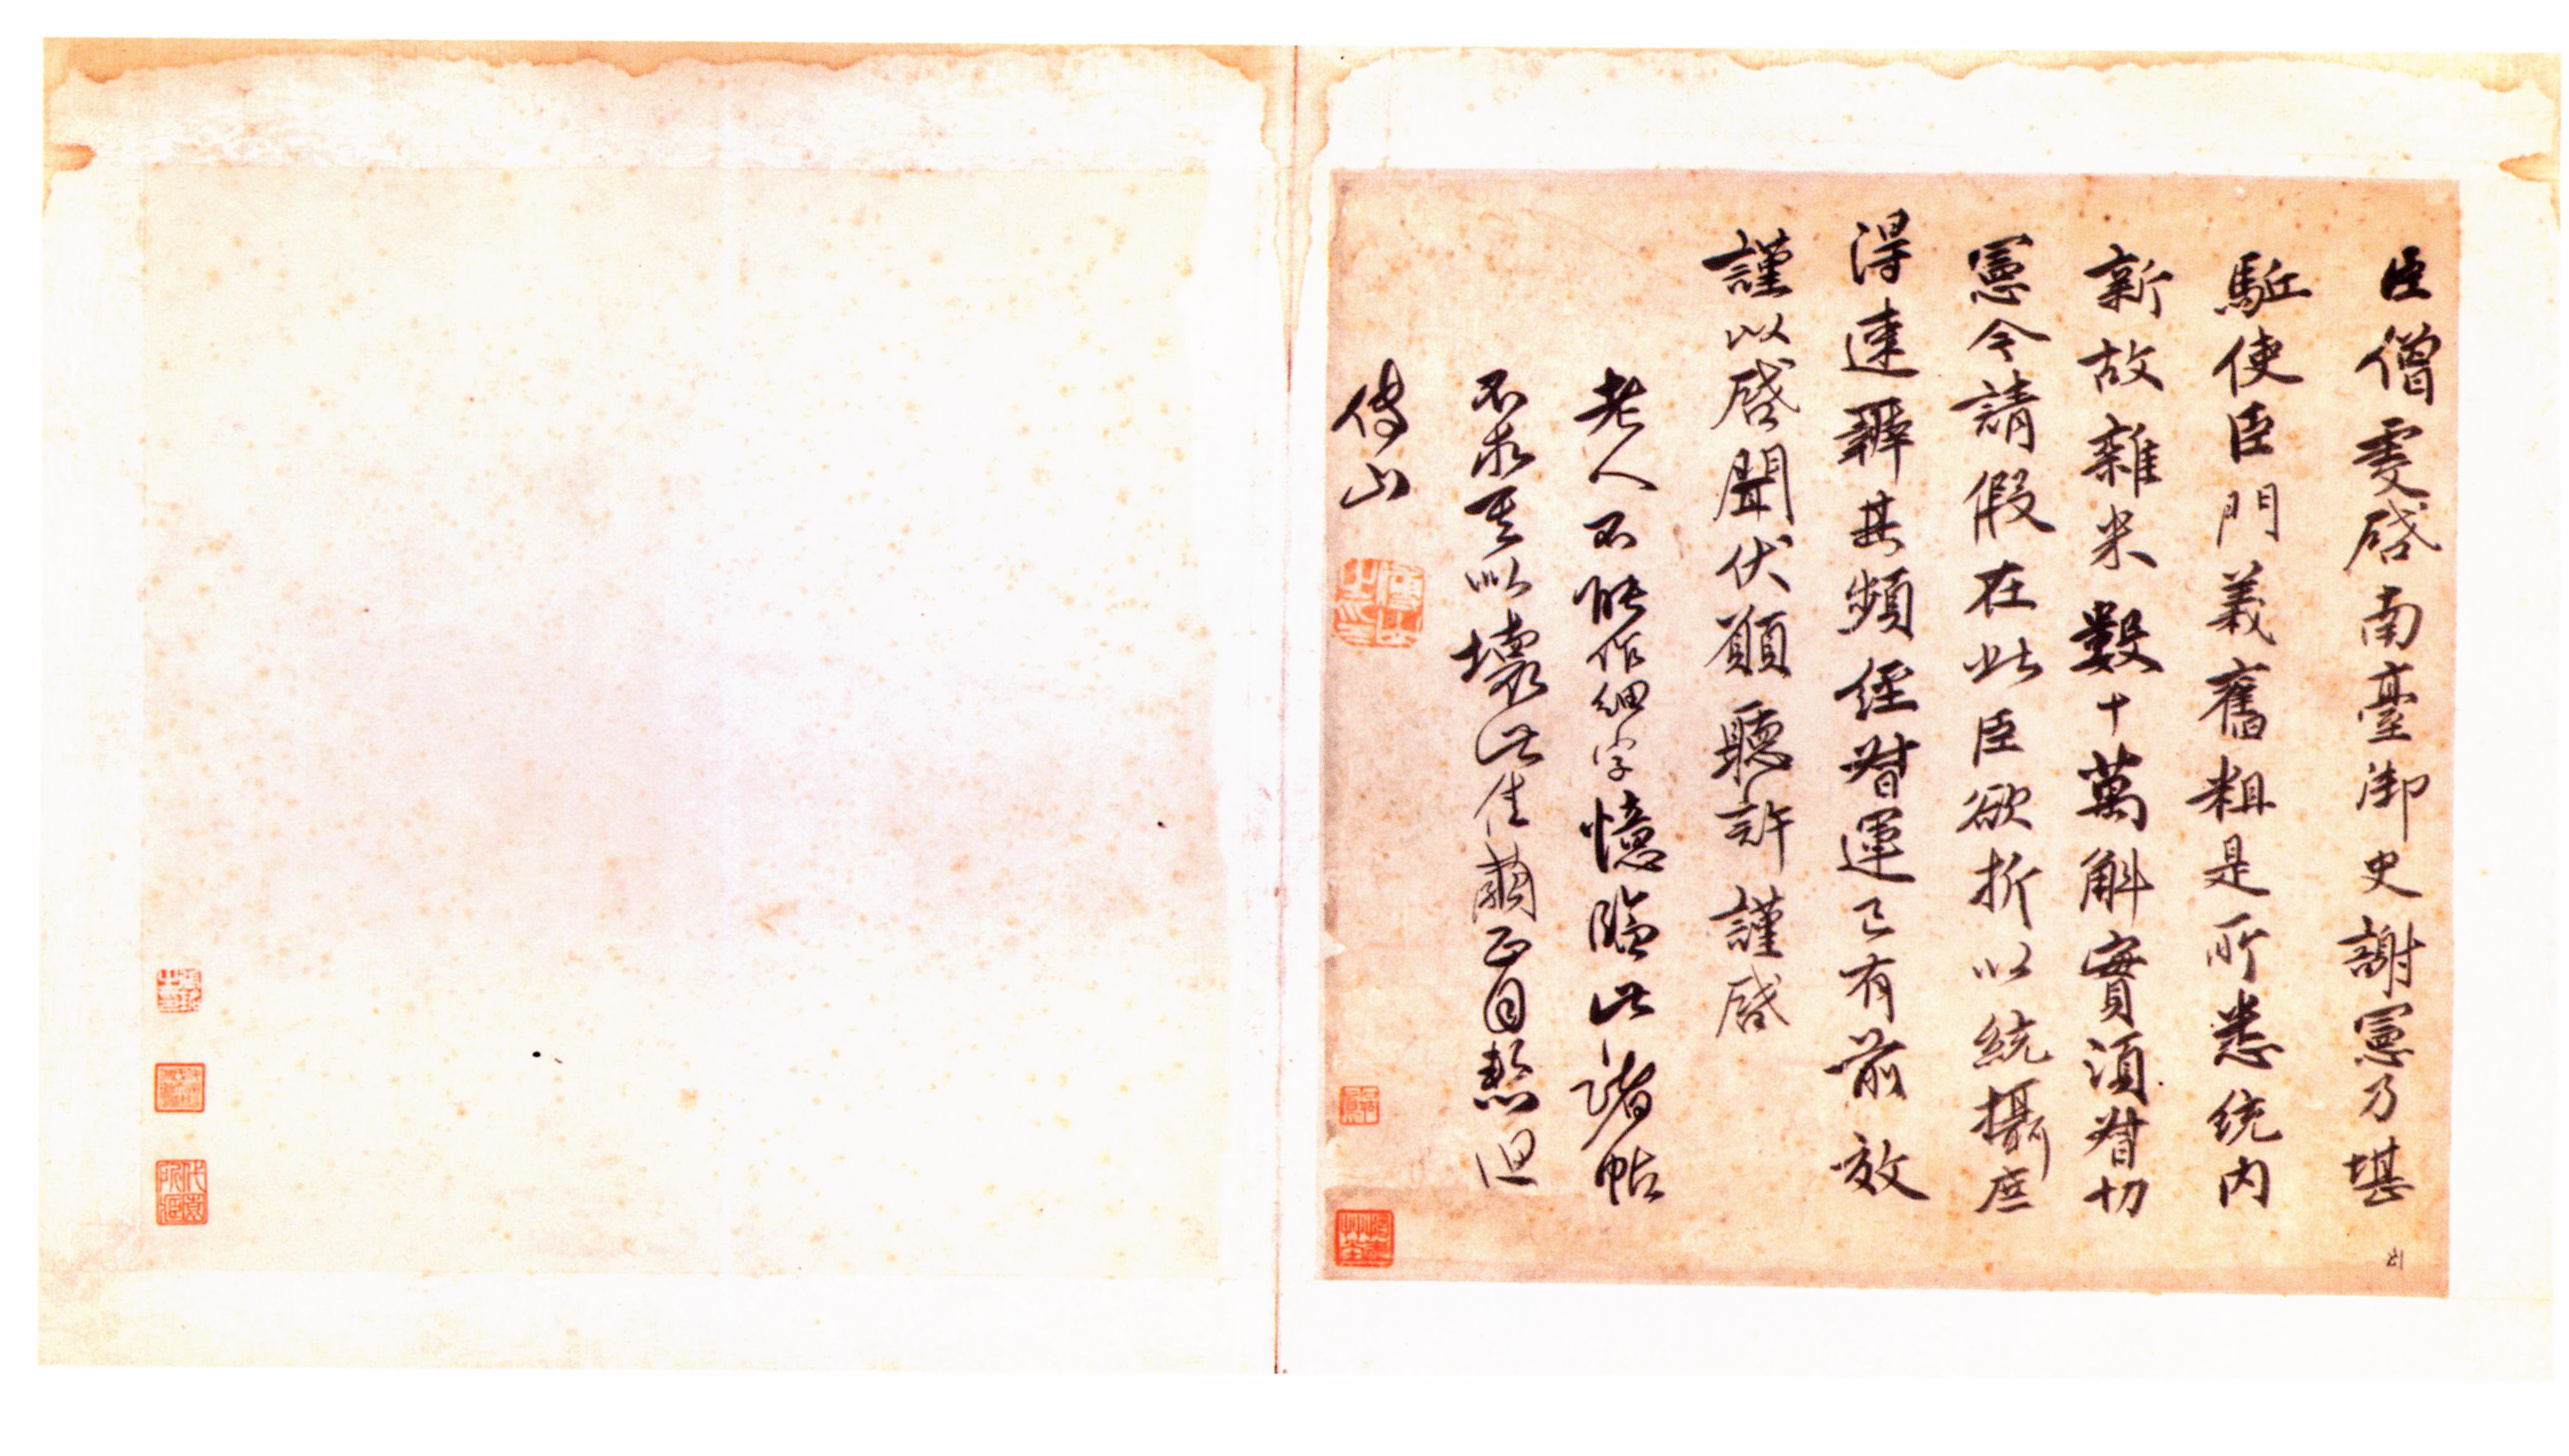 臣僧虔啓南臺御史謝憲乃堪
駈使臣門義舊粗是所悉統内
新故雜米數十萬斛實須督切
憲今請假在此臣欲折以統攝庶
得速辦其頻經督運已有前效
謹以啓聞伏願聽許謹啓
老人不能作細字憶臨此諸帖
不求其似壞此佳繭正自慙但
傅山
傅山之印